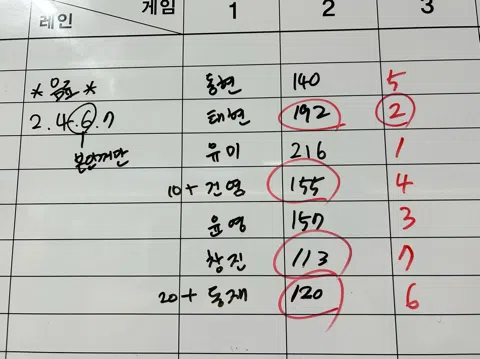 게임 1 2 3
레인
*음료* 동현 140 5
2.4.6.7 태현 192 2
본인꺼만 유미 216 1
10+ 건영 155 4
윤영 157 3
창진 113 7
20+ 동재 120 6